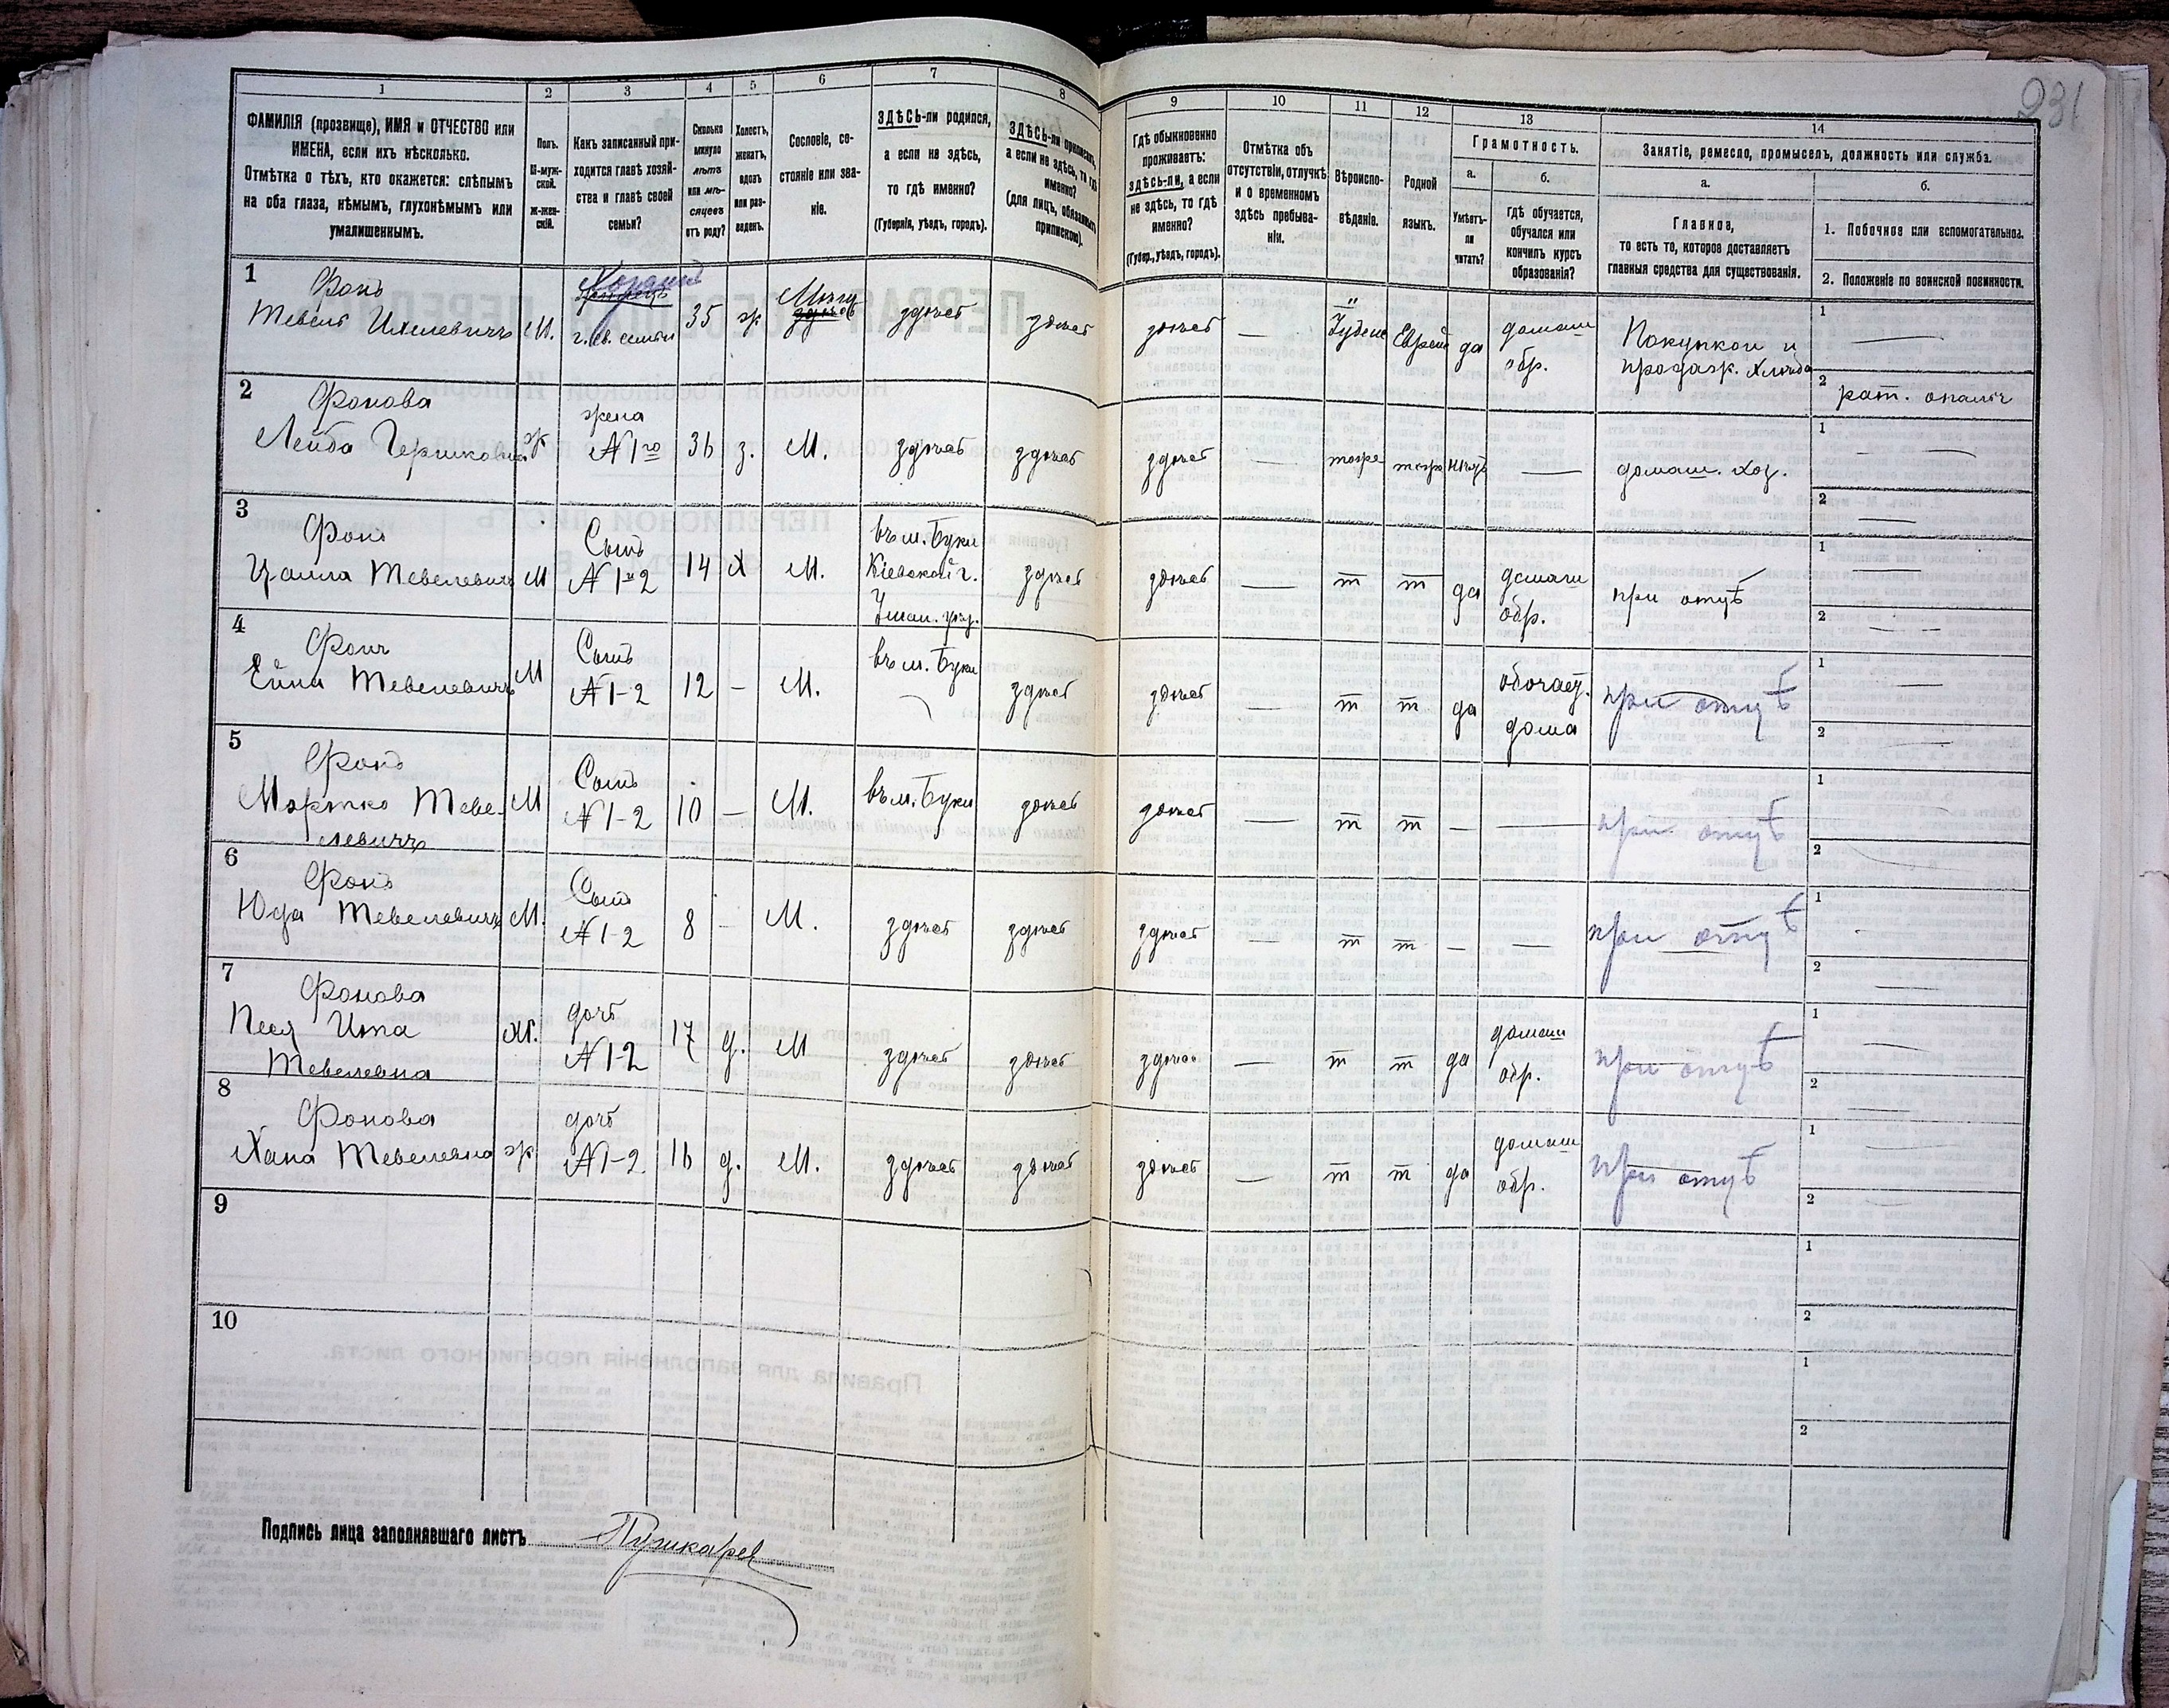 231
1
2
3
4
5
6
7
8
ФАМИЛІЯ (прозвище), ИМЯ и ОТЧЕСТВО или
ИМЕНА, если ихъ нѣсколько.
Отмѣтка о тѣхъ, кто окажется: слѣпымъ
на оба глаза, нѣмымъ, глухонѣмымъ или
умалишеннымъ.
Полъ.
М-муж-
ской.
ж-жен-
скій.
Какъ записанный при-
ходится главѣ хозяй-
ства и главѣ своей
семьи?
Сколько
минуло
лѣтъ
или мѣ-
сяцевъ
отъ роду?
Холостъ,
женатъ,
вдовъ
или раз-
веденъ.
Сословіе, со-
стояніе или зва-
ніе.
ЗДѢСЬ-ли родился,
а если не здѣсь,
то гдѣ именно?
(Губернія, уѣздъ, городъ).
ЗДѢСЬ-ли приписанъ,
а если не здѣсь, то гдѣ
именно?
(для лицъ, обязанныхъ
припискою).
9
10
11
12
13
14
Гдѣ обыкновенно
проживаетъ:
здѣсь-ли, а если
не здѣсь, то гдѣ
именно?
(Губер., уѣздъ, городъ).
Отмѣтка объ
отсутствіи, отлучкѣ
и о временномъ
здѣсь пребыва-
ніи.
Вѣроиспо-
вѣданіе.
Родной
языкъ.
Грамотность.
а.
б.
Умѣетъ-
ли
читать?
гдѣ обучается,
обучался или
кончилъ курсъ
образованія?
Занятіе, ремесло, промыселъ, должность или служба.
а.
б.
Главное,
то есть то, которое доставляетъ
главныя средства для существованія.
1. Побочное или вспомогательное.
2. Положеніе по воинской повинности.
1
Фокъ
Тевель Ихелевичъ М. г. св. семьи 35 ж здѣсь здѣсь здѣсь — Іудейс Еврейс да домаш обр. Покупкой и продаж. хлѣба
1 —
2 рат. ополч
2
Фокова
Лейба Гершковна ж жена № 1го 36 з. М. здѣсь здѣсь здѣсь — тоже тоже нѣтъ — домаш. хоз.
1 —
2 —
3
Фокъ
Тевелевичъ М Сынъ № 1 и 2 14 Х М. въ м. Буки Кіевской г. Уман. уѣз. здѣсь здѣсь — т т да домаш обр. при отцѣ
1 —
2 —
4
Фокъ
Тевелевичъ М Сынъ № 1-2 12 — М. въ м. Буки здѣсь здѣсь — т т да обучает. дома при отцѣ
1 —
2 —
5
Фокъ
Мортко Теве-
левичъ М Сынъ № 1-2 10 — М. въ м. Буки здѣсь здѣсь — т т — — при отцѣ
1
2
6
Фокъ
Юда Тевелевичъ М. Сынъ № 1-2 8 — М. здѣсь здѣсь здѣсь — т т — — при отцѣ
1 -
2 —
7
Фокова
Песя Ита
Тевелевна Ж. дочь № 1-2 17 д. М здѣсь здѣсь здѣсь — т т да домаш обр. при отцѣ
1 —
2 —
8
Фокова
Хана Тевелевна ж дочь № 1-2 16 д. М. здѣсь здѣсь здѣсь — т т да домаш обр. при отцѣ
1 —
2 —
9
1
2
10
1
2
Подпись лица заполнявшаго листъ